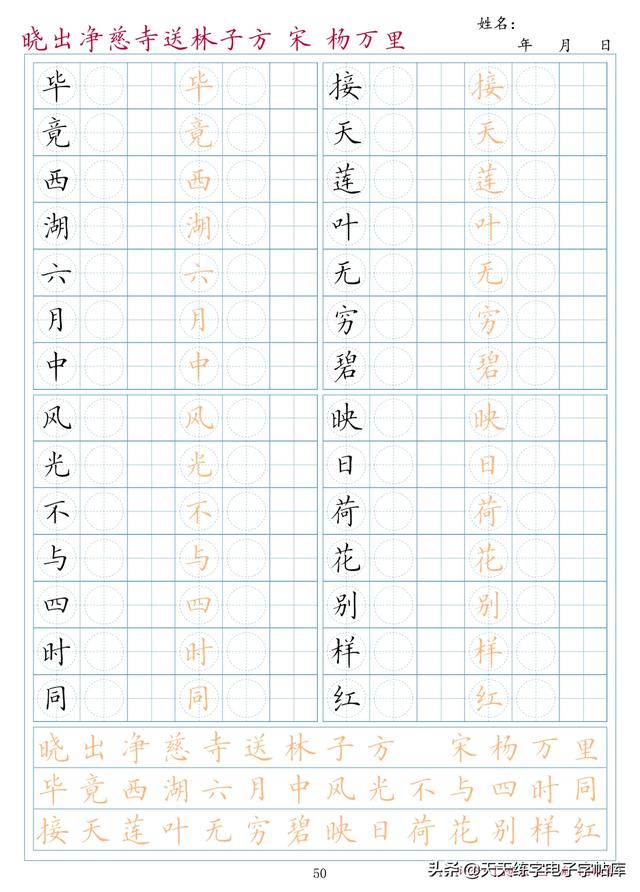 晓出净慈寺送林子方 宋 杨万里
姓名：
年 月 日
毕 毕 接 接
竟 竟 天 天
西 西 莲 莲
湖 湖 叶 叶
六 六 无 无
月 月 穷 穷
中 中 碧 碧
风 风 映 映
光 光 日 日
不 不 荷 荷
与 与 花 花
四 四 别 别
时 时 样 样
同 同 红 红
晓出净慈寺送林子方 宋杨万里
毕竟西湖六月中风光不与四时同
接天莲叶无穷碧映日荷花别样红
50
头条@天天练字电子字帖库